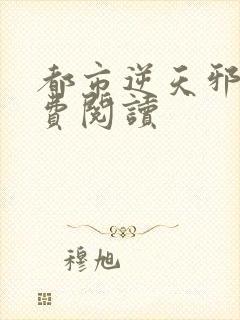 都市逆天邪
費閱讀
穆旭